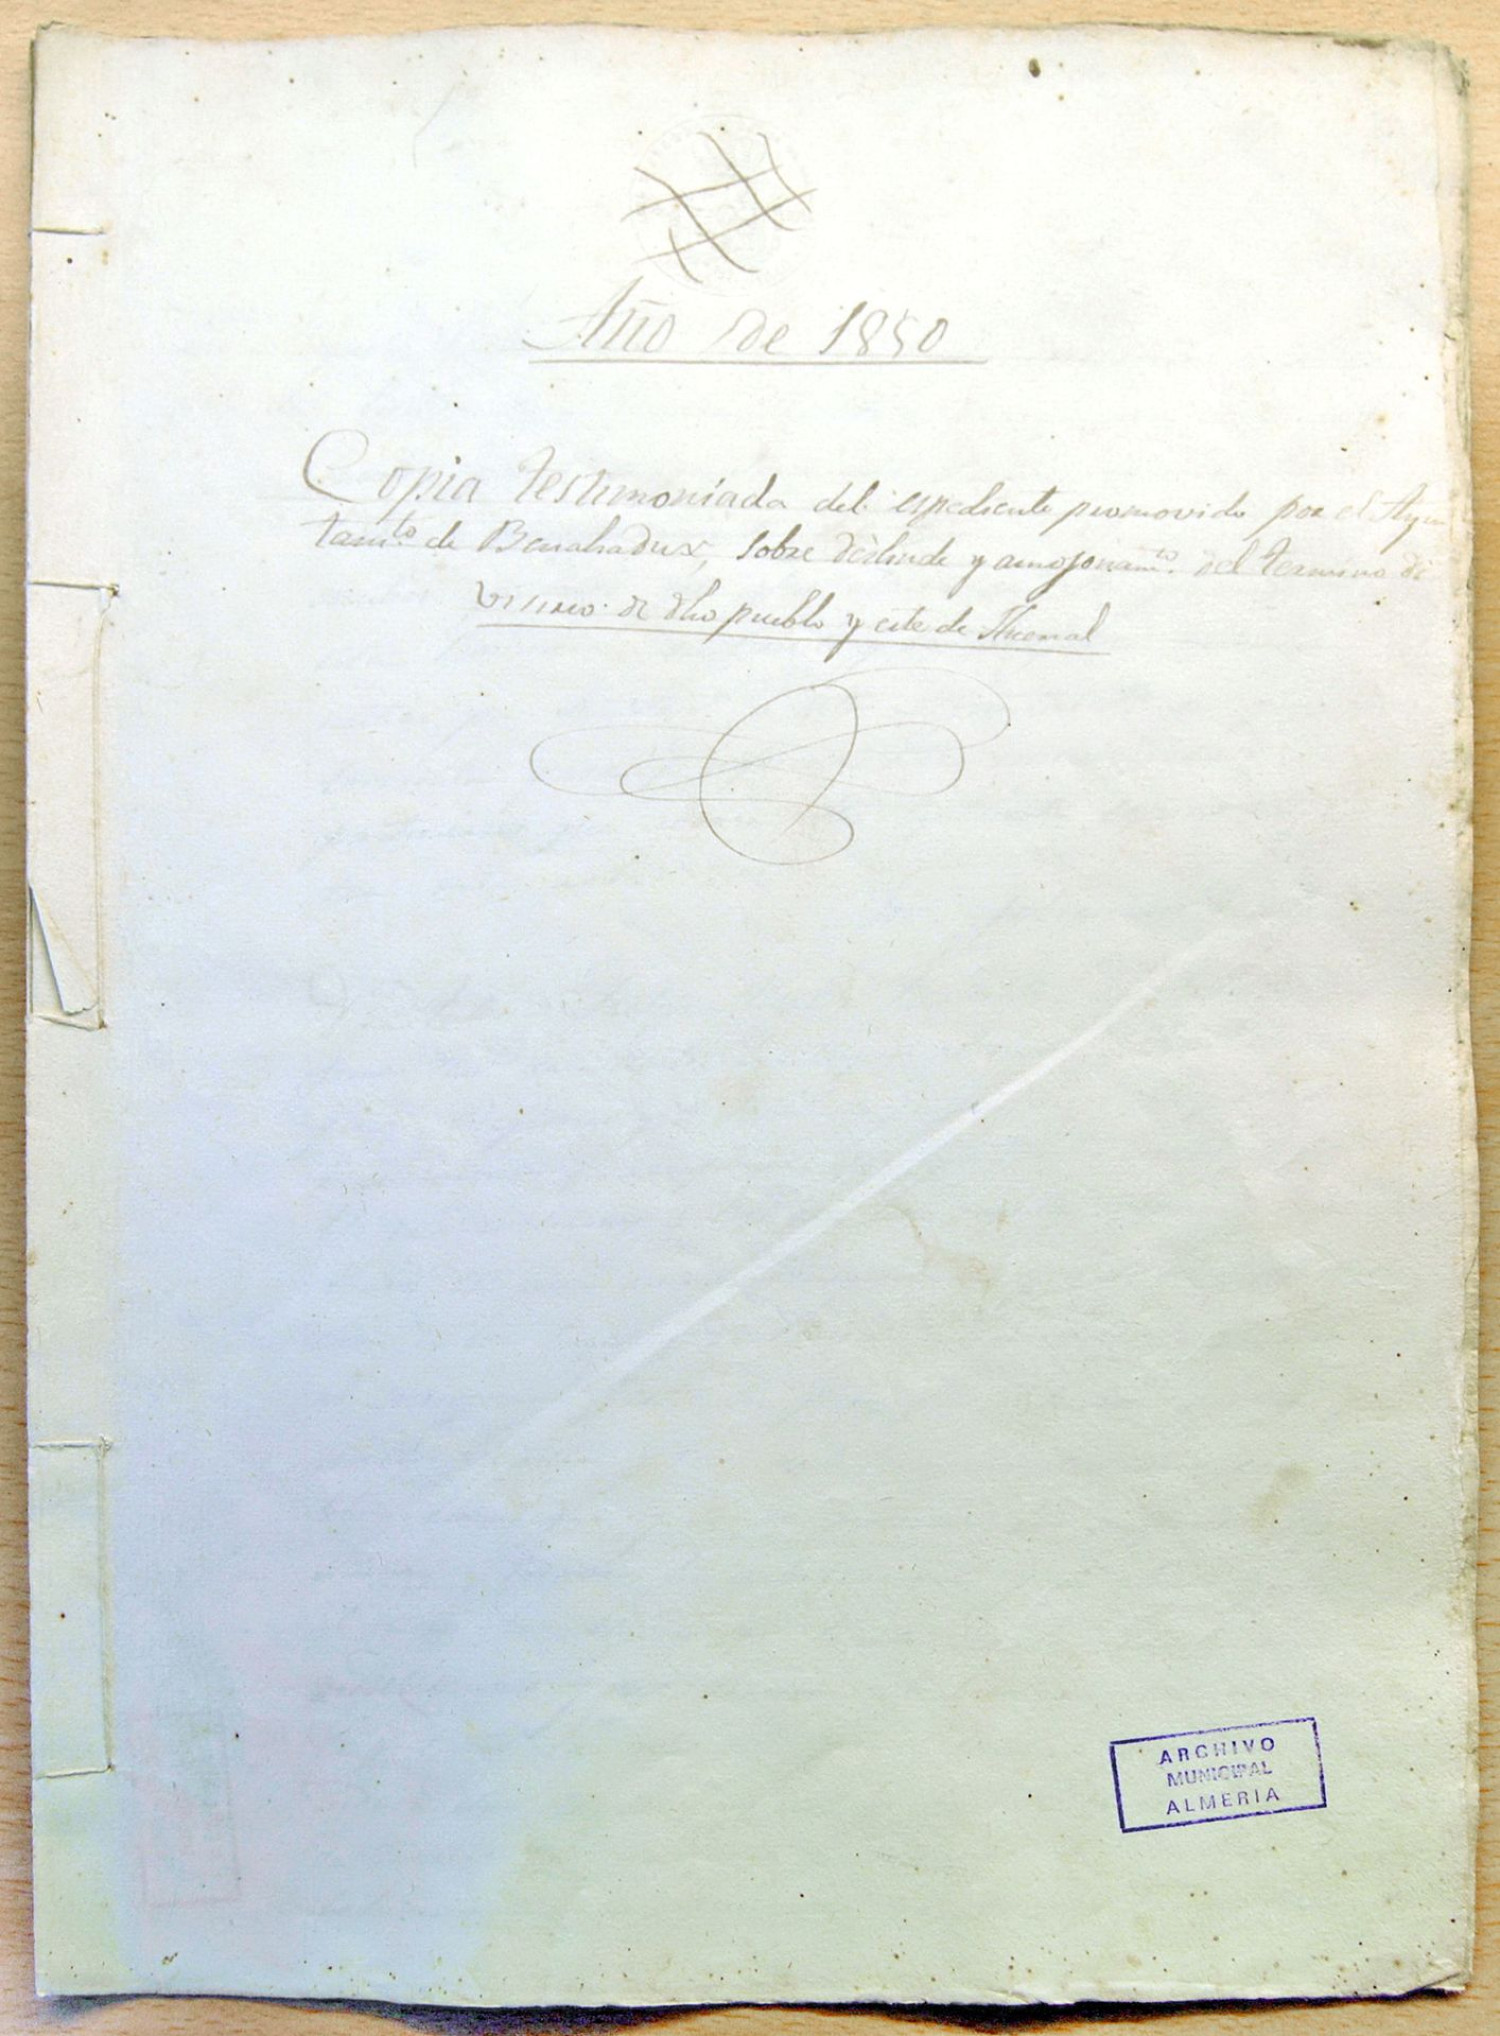 Año de 1850
Copia testimoniada del espediente promovido por el Ayun
tamto. de Benahadux, sobre deslinde y amojonamto. del termino di
visorio de dho pueblo y este de
ARCHIVO
MUNICIPAL
ALMERIA